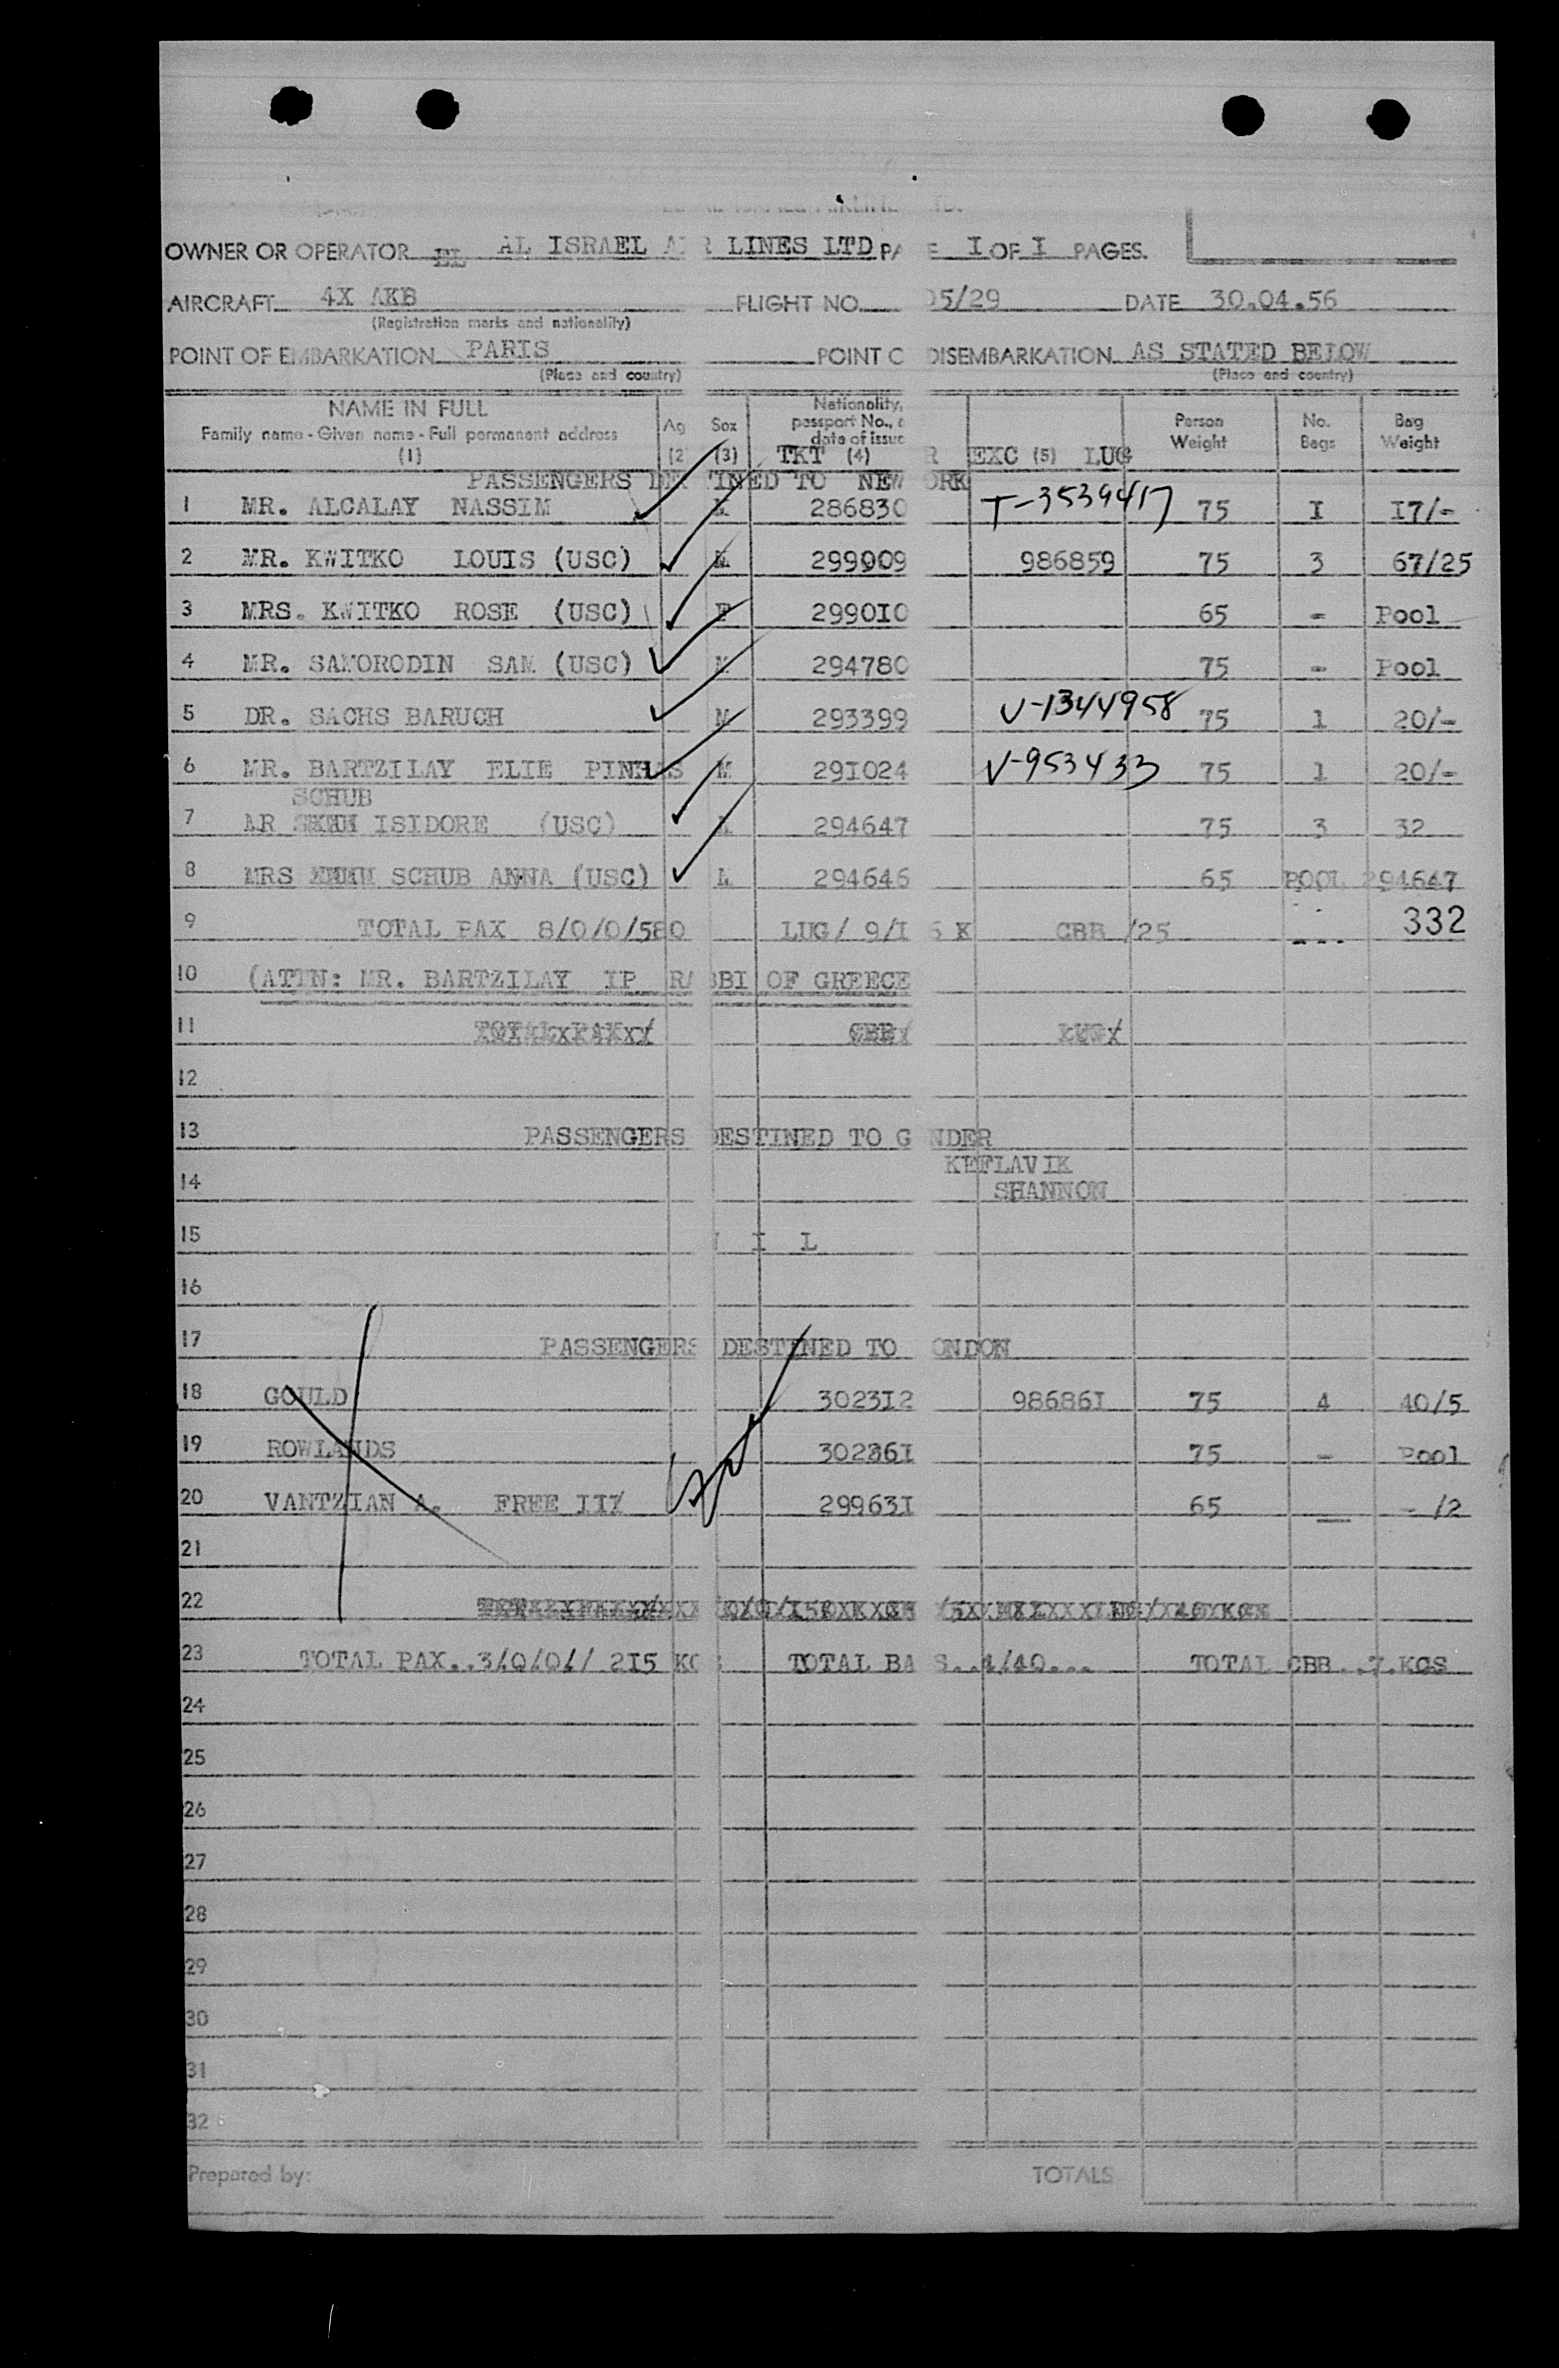 OWNER OR OPERATOR EL AL ISRAEL LINES LTD I OF I PAGES.
AIRCRAFT 4X AKB FLIGHT NO. 05/29 DATE 30.04.56
(Registration marks and nationality)
POINT OF EMBARKATION PARIS POINT DISEMBARKATION AS STATED BELOW
(Place and country) (Place and country)
NAME IN FULL Nationality, Person No. Bag
Family name - Given name - Full permanent address Ag Sex passport No., Weight Bags Weight
date of issue
(1) (2 (3) TKT (4) R EXC (5) LUG
PASSENGERS TINED TO NEW ORK
1 MR. ALCALAY NASSIM M 286830 T-3539417 75 I I7/-
2 MR. KWITKO LOUIS (USC) M 299009 986859 75 3 67/25
3 MRS. KWITKO ROSE (USC) F 2990I0 65 - Pool
4 MR. SAMORODIN SAM (USC) M 294780 75 - Pool
5 DR. SACHS BARUCH M 293399 V-1344958 75 1 20/-
6 MR. BARTZILAY ELIE PINHAS M 29I024 V-953433 75 1 20/-
SCHUB
7 MR ISIDORE (USC) M 294647 75 3 32
8 MRS SCHUB ANNA (USC) M 294646 65 POOL 294647
9 TOTAL PAX 8/0/0/580 LUG/ 9/I 6 K CBB /25 332
10 (ATTN: MR. BARTZILAY IP RABBI OF GREECE
11 TOTALxPAXx/ CBB/ LUG/
12
13 PASSENGERS DESTINED TO G NDER
KEFLAVIK
14 SHANNON
15 I L
16
17 PASSENGERS DESTINED TO ONDON
18 GOULD 3023I2 98686I 75 4 40/5
19 ROWLANDS 30236I 75 - Pool
20 VANTZIAN A. FREE III 29963I 65 - /2
21
22
23 TOTAL PAX..3/0/0// 2I5 KG TOTAL BA S..4/40... TOTAL CBB..7.KGS
24
25
26
27
28
29
30
31
32
Prepared by: TOTALS